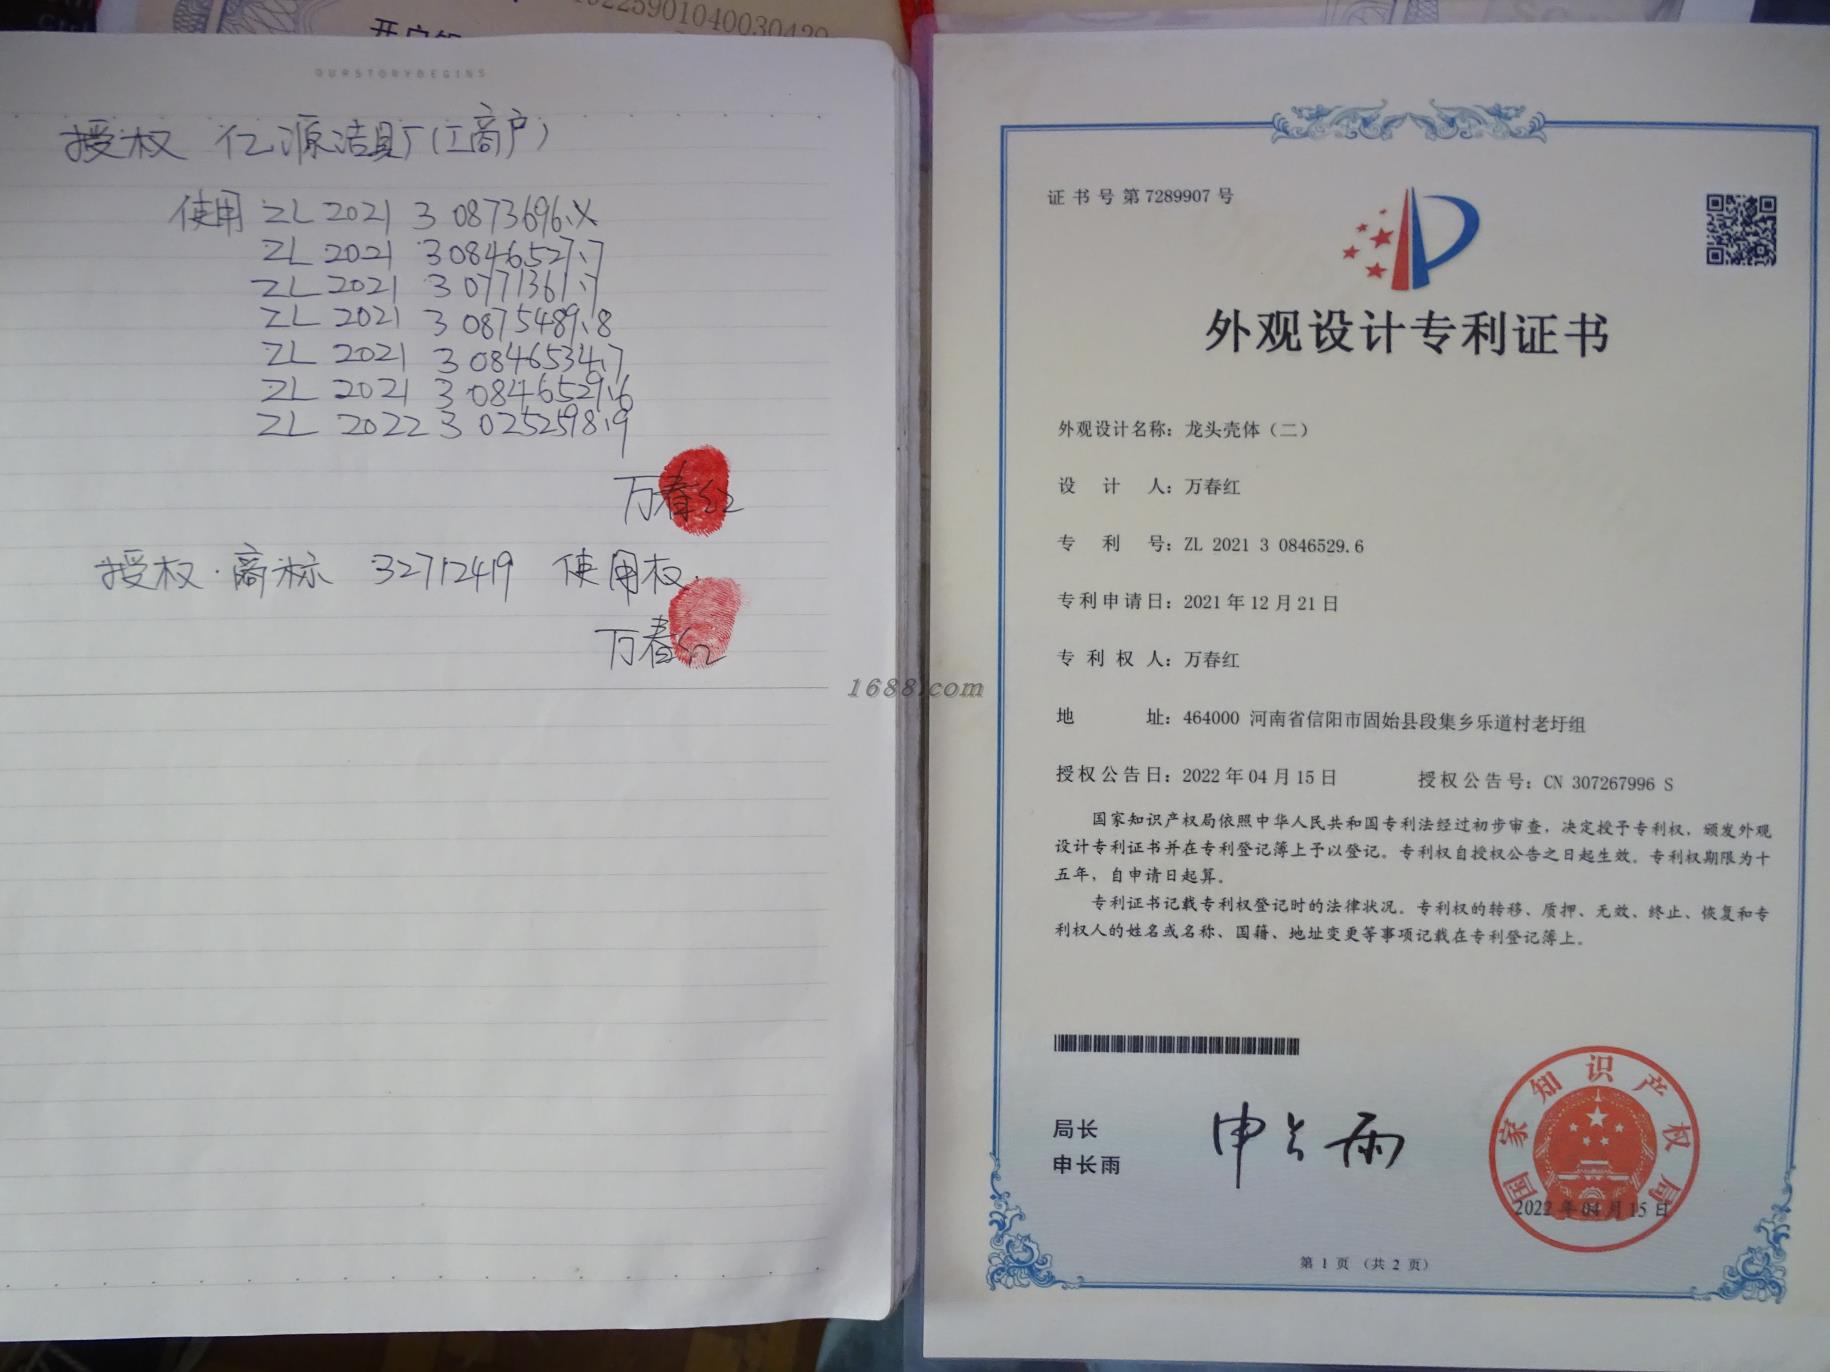 开户银
OURSTORYBEGINS
授权 亿源洁具厂(工商户)
使用 ZL 2021 3 0873696.X
ZL 2021 3 0846527.7
ZL 2021 3 0771367.7
ZL 2021 3 0875489.8
ZL 2021 3 0846534.7
ZL 2021 3 0846529.6
ZL 2022 3 0252598.9
万春红
授权.商标 32712419 使用权.
万春红
1688.com
证书号第7289907号
外观设计专利证书
外观设计名称：龙头壳体（二）
设计人：万春红
专利号：ZL 2021 3 0846529.6
专利申请日：2021年12月21日
专利权人：万春红
地址：464000 河南省信阳市固始县段集乡乐道村老圩组
授权公告日：2022年04月15日 授权公告号：CN 307267996 S
国家知识产权局依照中华人民共和国专利法经过初步审查，决定授予专利权，颁发外观
设计专利证书并在专利登记簿上予以登记。专利权自授权公告之日起生效。专利权期限为十
五年，自申请日起算。
专利证书记载专利权登记时的法律状况。专利权的转移、质押、无效、终止、恢复和专
利权人的姓名或名称、国籍、地址变更等事项记载在专利登记簿上。
局长
申长雨
申长雨
国家知识产权局
2022年04月15日
第 1 页 （共 2 页）